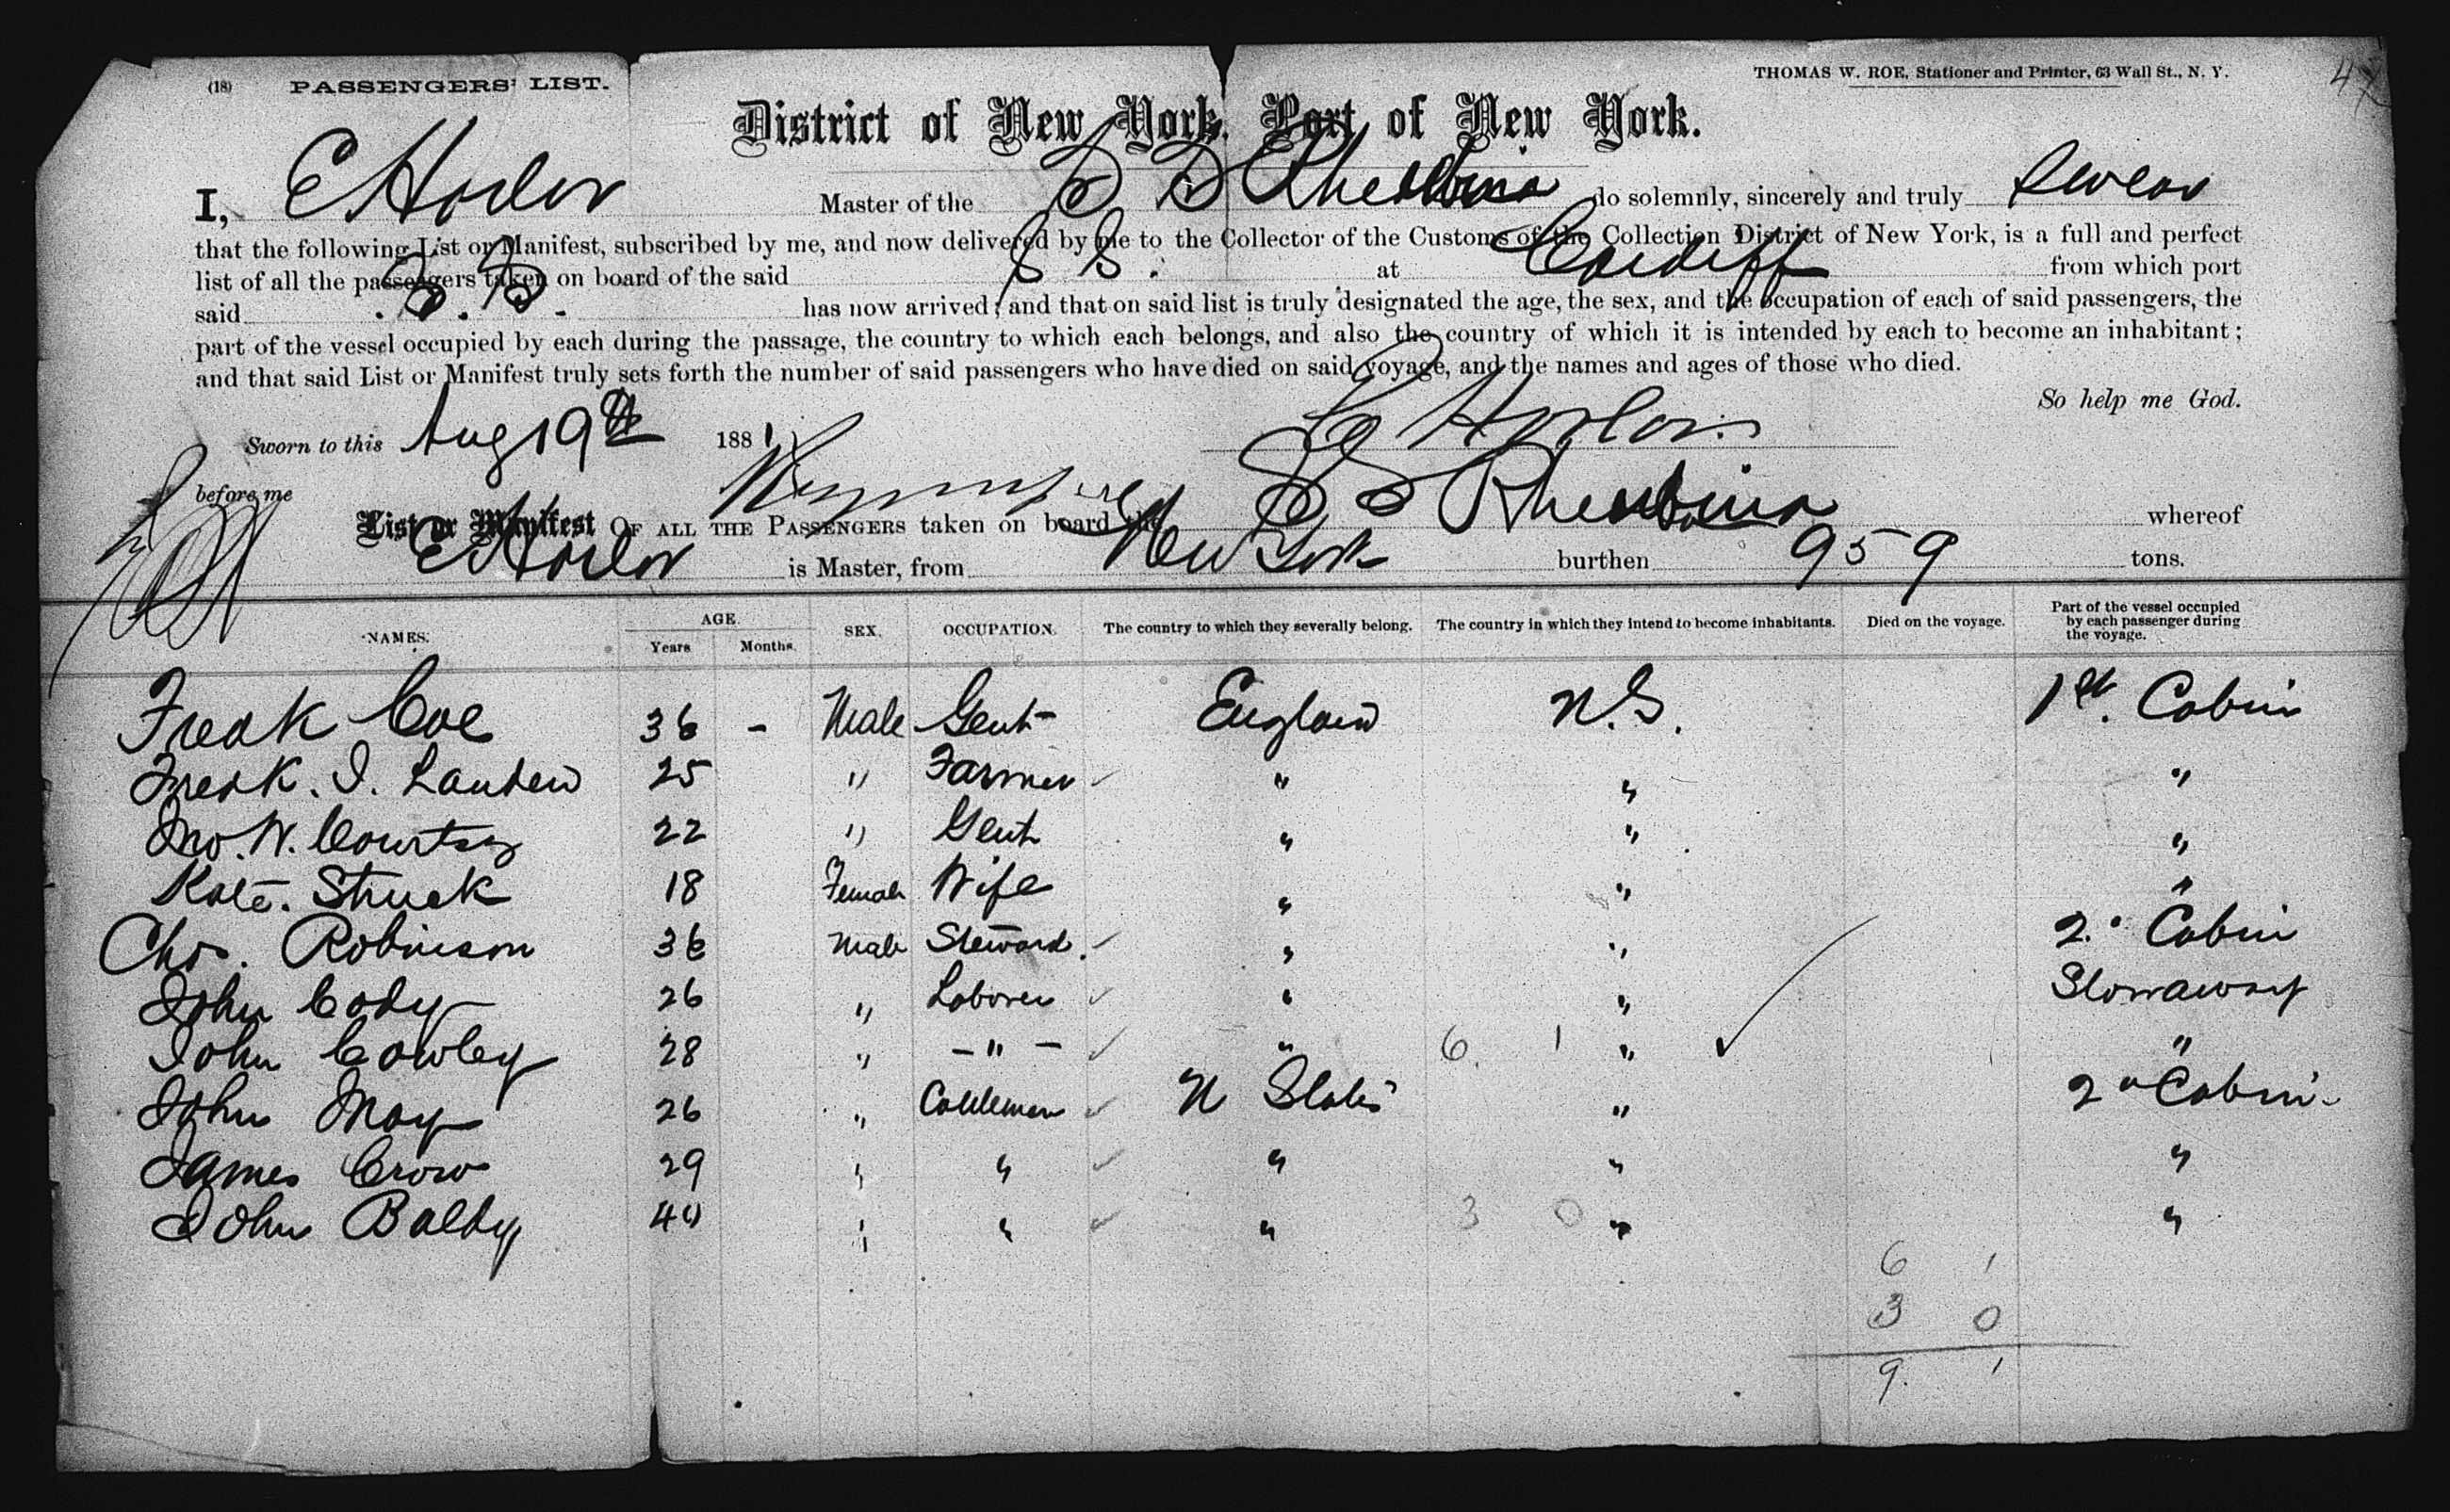 (18) PASSENGERS' LIST.
THOMAS W. ROE, Stationer and Printer, 63 Wall St., N. Y.
47
District of New York. Port of New York.
I, Master of the S S do solemnly, sincerely and truly swear
that the following List or Manifest, subscribed by me, and now delivered by me to the Collector of the Customs of the Collection District of New York, is a full and perfect
list of all the passengers taken on board of the said S S. at Cardiff from which port
said S.S. has now arrived; and that on said list is truly designated the age, the sex, and the occupation of each of said passengers, the
part of the vessel occupied by each during the passage, the country to which each belongs, and also the country of which it is intended by each to become an inhabitant;
and that said List or Manifest truly sets forth the number of said passengers who have died on said voyage, and the names and ages of those who died.
So help me God.
Sworn to this Aug 19th 1881
before me
List or Manifest OF ALL THE PASSENGERS taken on board the S S whereof
is Master, from New York burthen 959 tons.
NAMES. AGE. SEX. OCCUPATION. The country to which they severally belong. The country in which they intend to become inhabitants. Died on the voyage. Part of the vessel occupied by each passenger during the voyage.
Years Months.
Fredk Coe 36 - Male Gent England U.S. 1st. Cabin
Fredk. I. 25 " Farmer " " "
Jno. W. Courtsy 22 " Gent " " "
Kate. Struck 18 Female Wife " " "
Chs. Robinson 36 Male Steward. " " 2. Cabin
John Cody 26 " Laborer " " Stowaway
John Cowley 28 " - " - " 6. 1 " "
John May 26 " Cattleman U States " 2" Cabin
James Crow 29 " " " " "
John Balby 40 " " " 3 0 " "
6 1
3 0
9. 1